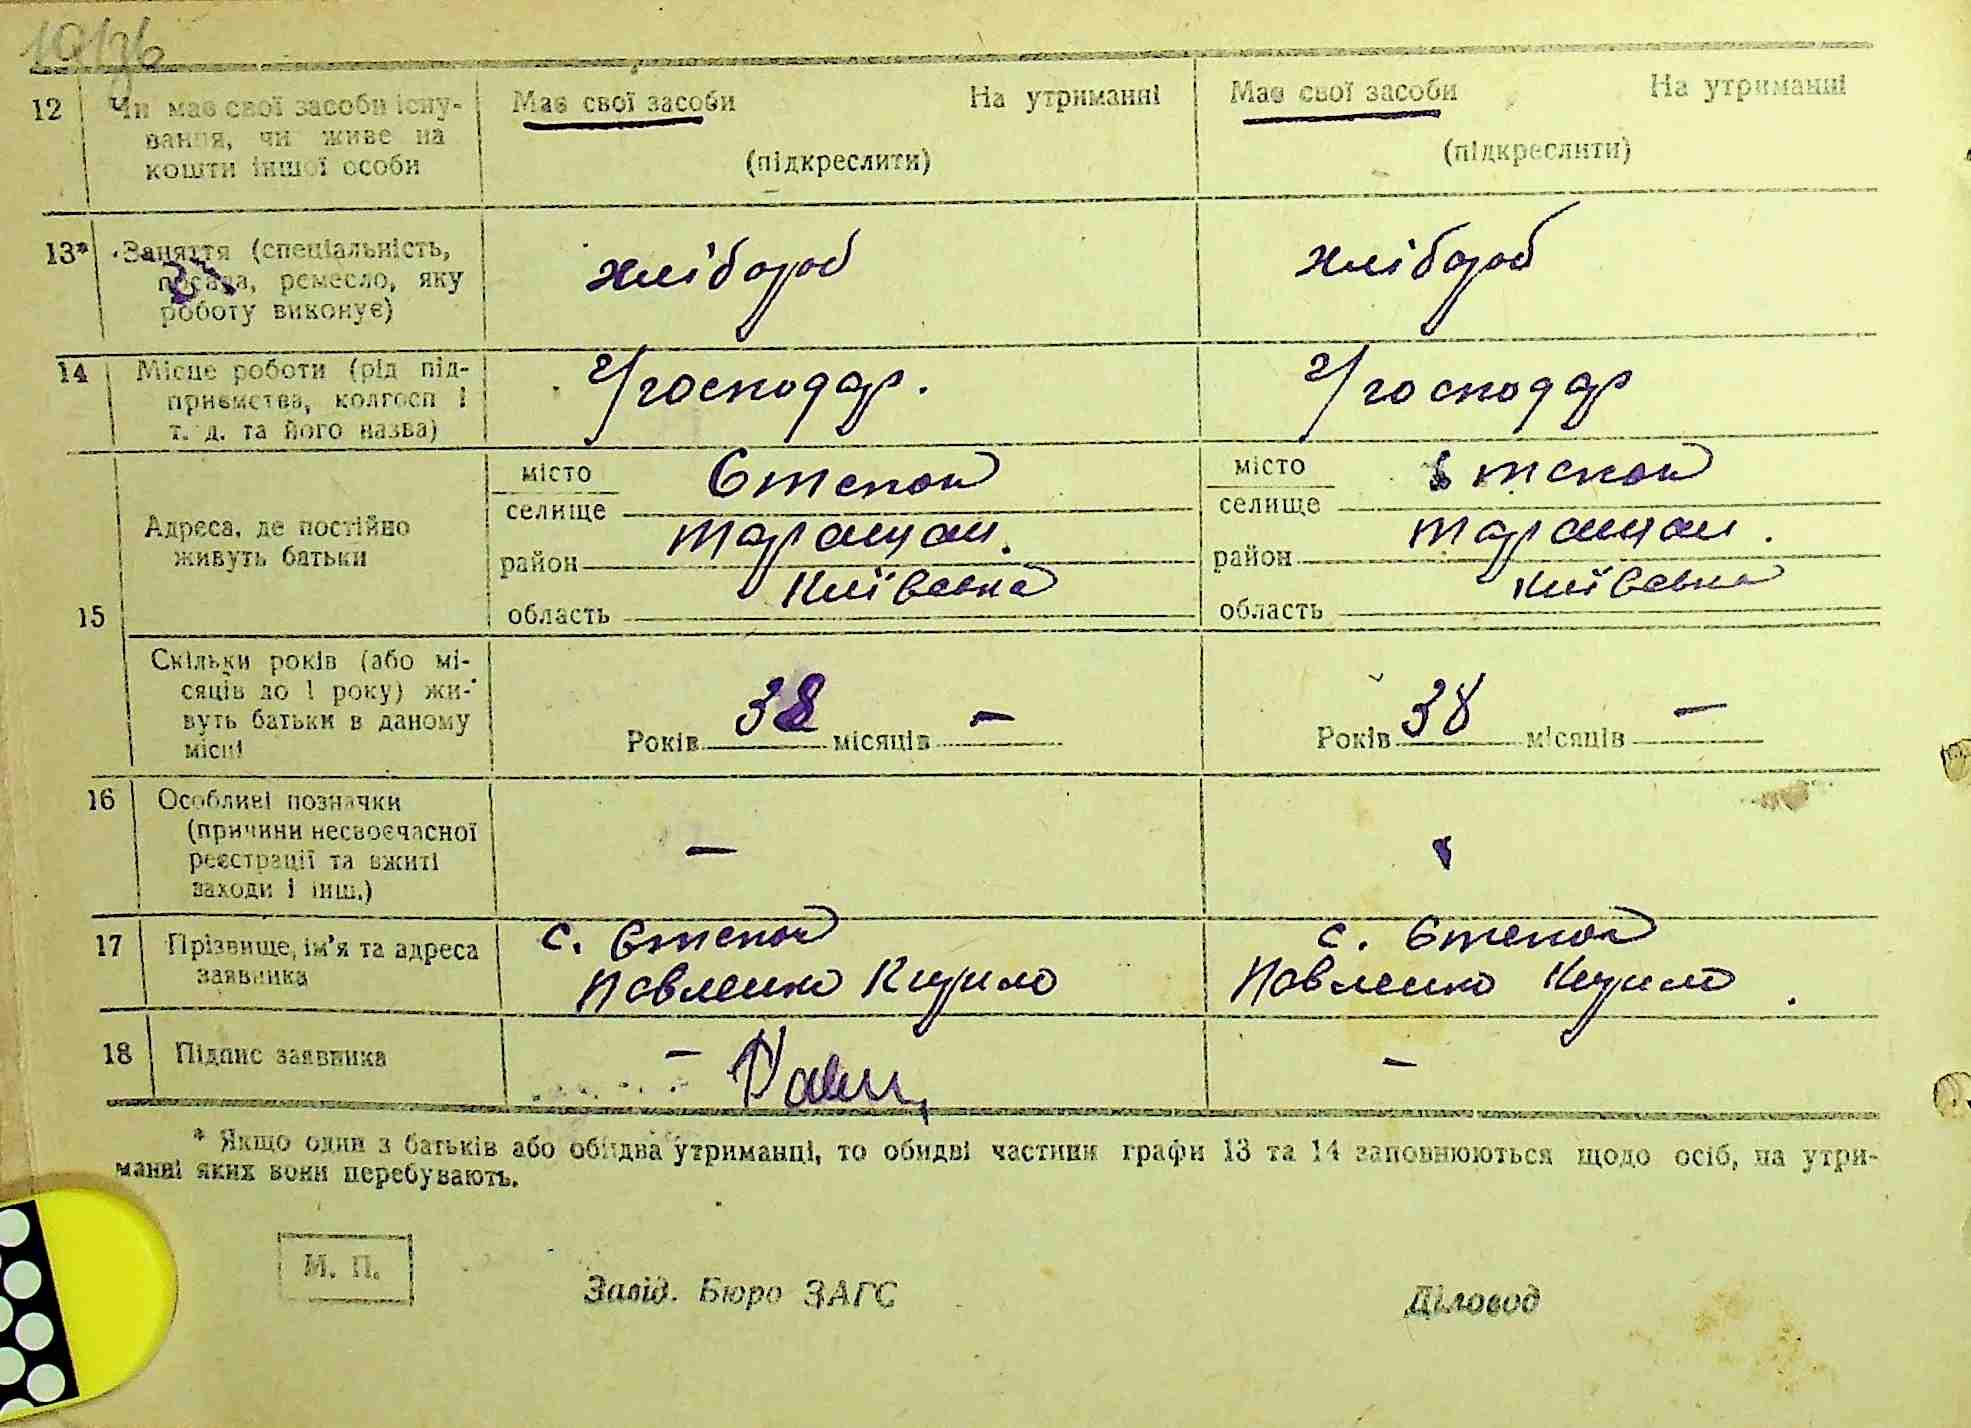 12 Чи має свої засоби існу- Має свої засоби На утриманні Має свої засоби На утриманні
вання, чи живе на
кошти іншої особи (підкреслити) (підкреслити)
13* Заняття (спеціальність, хлібороб хлібороб
посада, ремесло, яку
роботу виконує)
14 Місце роботи (рід під- г/господар. г/господар
приємства, колгосп і
т. д. та його назва)
15 Адреса, де постійно
живуть батьки
місто Степок місто Степок
селище селище
район Таращан. район Таращан.
область Київська область Київська
Скільки років (або мі-
сяців до 1 року) жи-
вуть батьки в даному
місці
Років 38 місяців — Років 38 місяців —
16 Особливі позначки
(причини несвоєчасної
реєстрації та вжиті — 
заходи і інш.)
17 Прізвище, ім'я та адреса с. Степок с. Степок
заявника Павленко Кирило Павленко Кирило.
18 Підпис заявника — —
* Якщо один з батьків або обидва утриманці, то обидві частини графи 13 та 14 заповнюються щодо осіб, на утри-
манні яких вони перебувають.
М. П.
Завід. Бюро ЗАГС Діловод